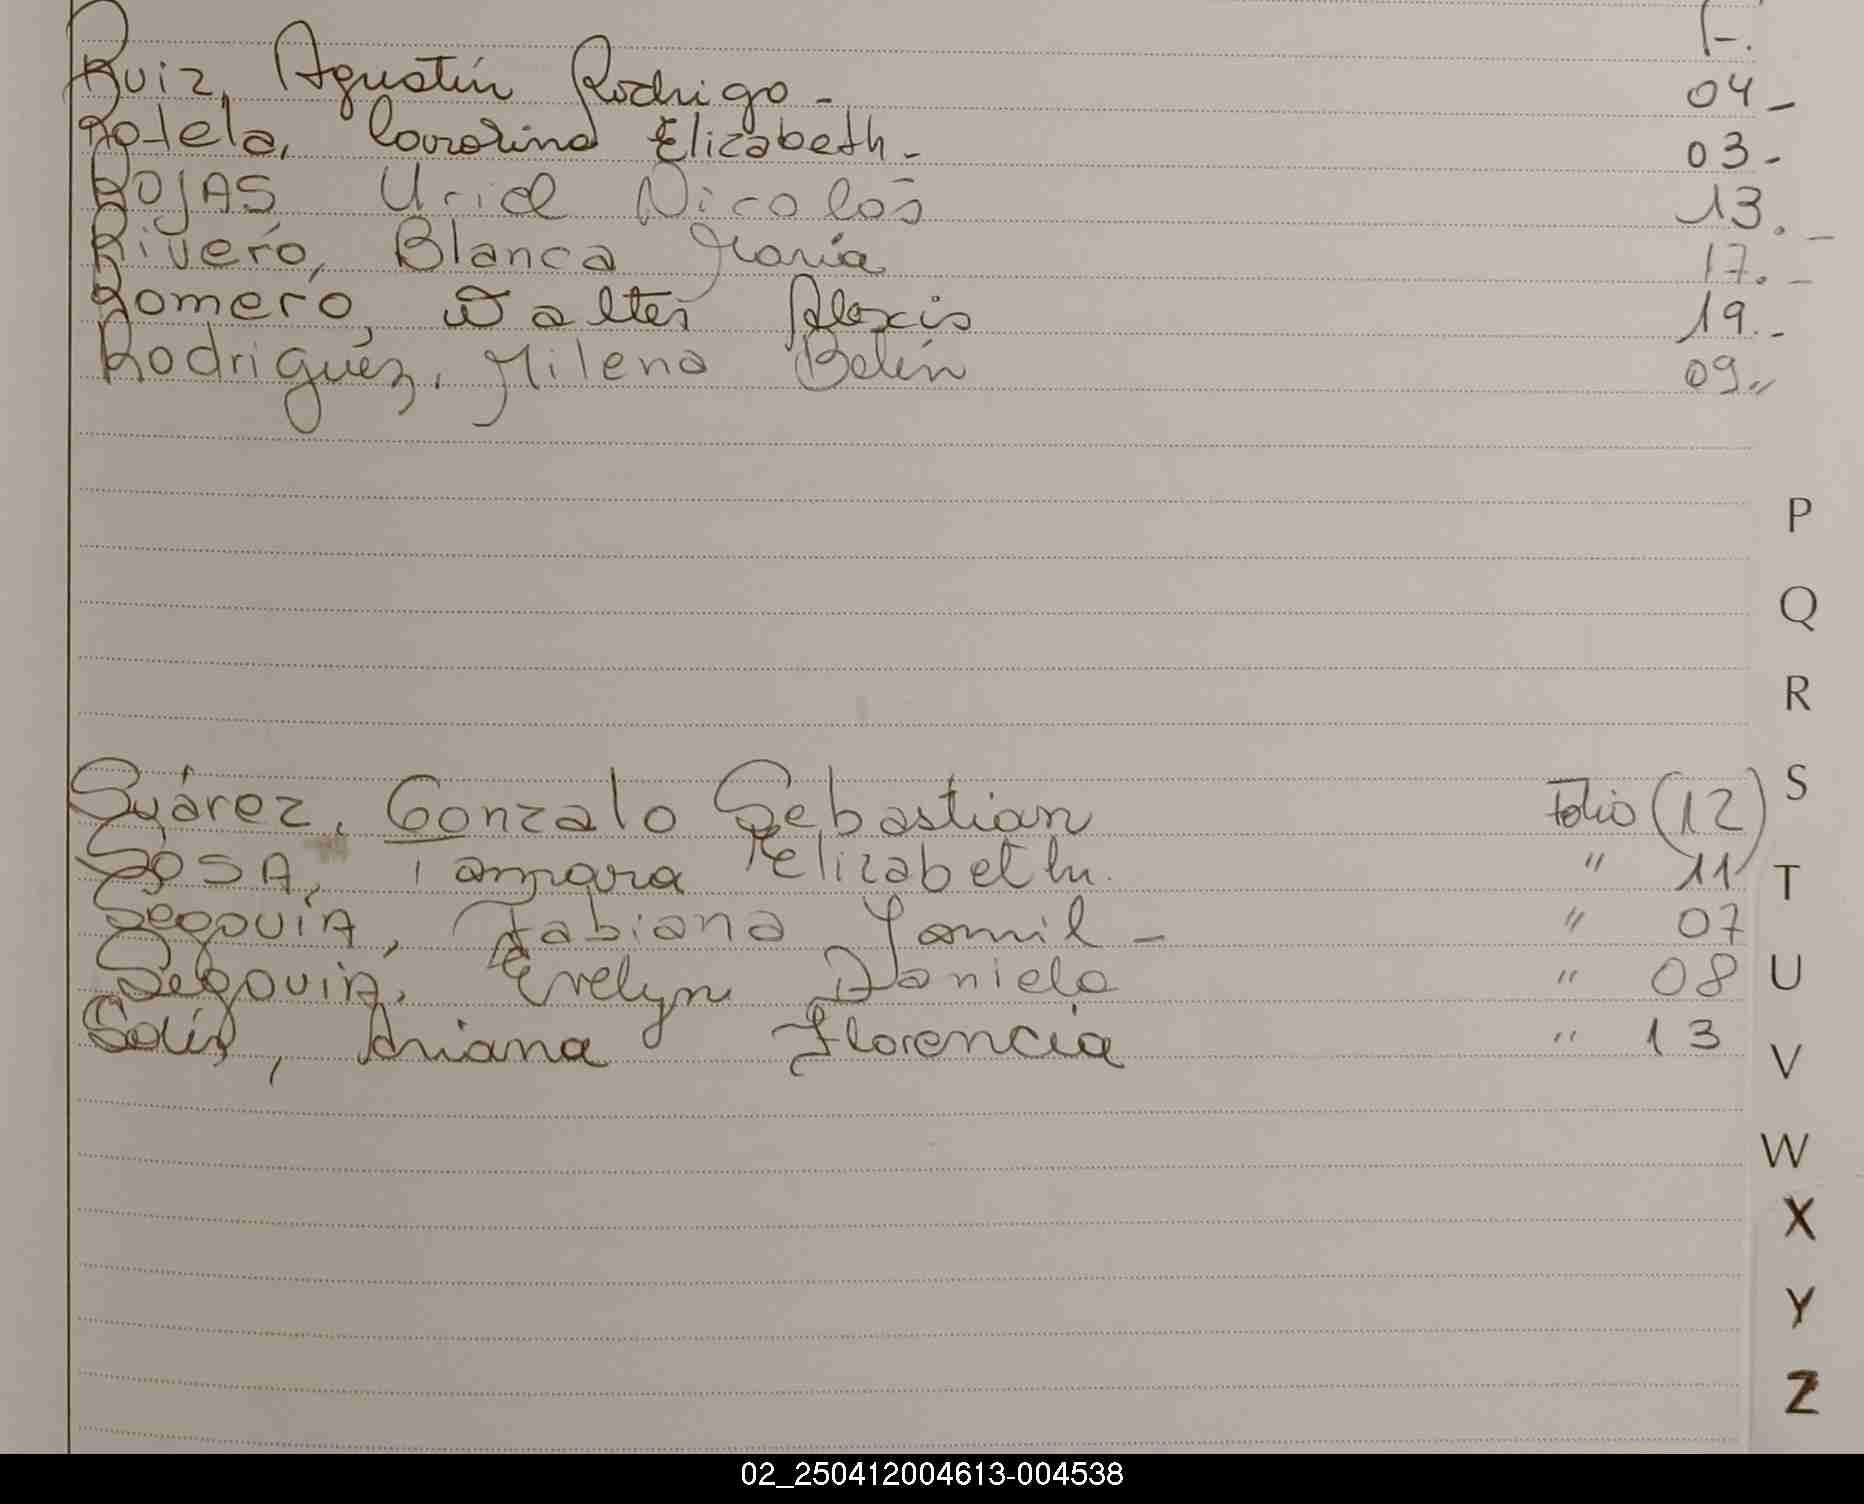 F.
Ruiz, Agustín Rodrigo - 04 -
Rotela, Elizabeth - 03 -
ROJAS Uriel Nicolás 13. -
Rivero, Blanca María 17. -
Romero, Walter Alexis 19. -
Rodriguez, Milena Belén 09 "
P
Q
R
Suárez, Gonzalo Sebastian Folio (12) S
SOSA, Tamara Elizabeth. " 11 T
SegouiA, Fabiana Yamil - " 07
SegouiA, Evelyn Daniela " 08 U
Solís, Ariana Florencia " 13 V
W
X
Y
Z
02_250412004613-004538